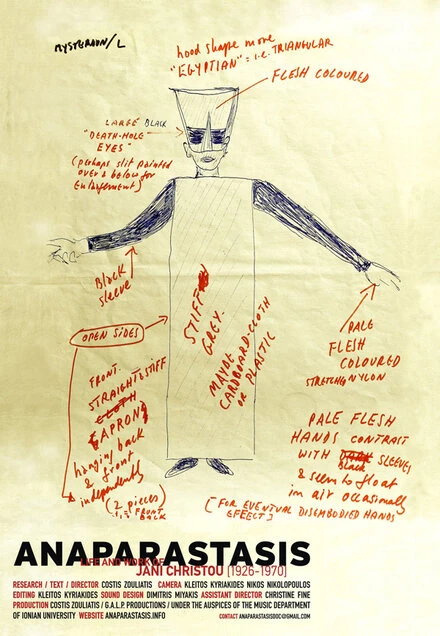 MYSTERION/L
hood shape more
"EGYPTIAN" = i.e. TRIANGULAR
FLESH COLOURED
LARGE BLACK
"DEATH-HOLE
EYES"
(perhaps slit painted
over & below for
Enlargement)
Black
sleeve
OPEN SIDES
STIFF
GREY.
MAYBE
CARDBOARD-CLOTH
OR PLASTIC
PALE
FLESH
COLOURED
STRETCH NYLON
FRONT.
STRAIGHT & STIFF
CLOTH
(APRON)
hanging back
& front
independently
(2 pieces)
FRONT
BACK
PALE FLESH
HANDS CONTRAST
WITH Black SLEEVES
& seem to float
in air occasionally
[FOR EVENTUAL DISEMBODIED HANDS
EFFECT]
ANAPARASTASIS
LIFE AND WORK OF
JANI CHRISTOU (1926-1970)
RESEARCH / TEXT / DIRECTOR COSTIS ZOULIATIS CAMERA KLEITOS KYRIAKIDES NIKOS NIKOLOPOULOS
EDITING KLEITOS KYRIAKIDES SOUND DESIGN DIMITRIS MIYAKIS ASSISTANT DIRECTOR CHRISTINE FINE
PRODUCTION COSTIS ZOULIATIS / G.A.L.P. PRODUCTIONS / UNDER THE AUSPICES OF THE MUSIC DEPARTMENT
OF IONIAN UNIVERSITY WEBSITE ANAPARASTASIS.INFO
CONTACT ANAPARASTASISDOC@GMAIL.COM